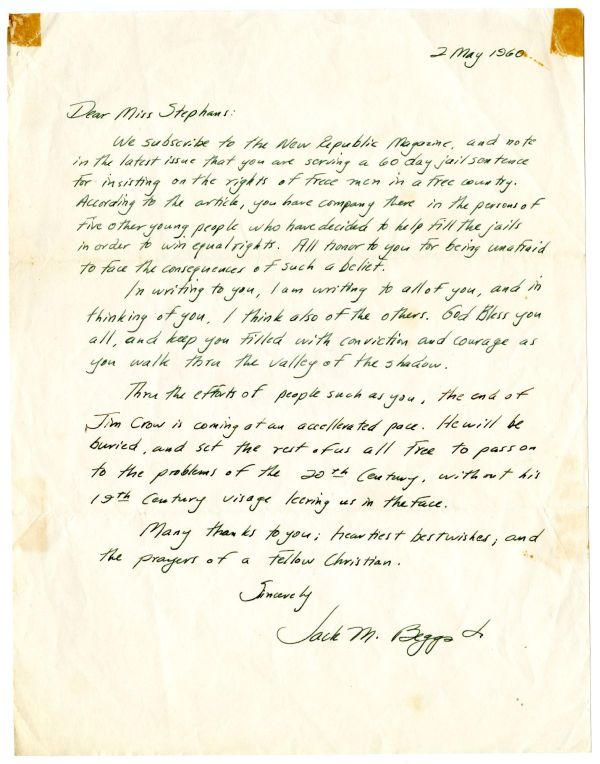 2 May 1960
Dear Miss Stephans:
We subscribe to the New Republic Magazine, and note
in the latest issue that you are serving a 60 day jail sentence
for insisting on the rights of free men in a free country.
According to the article, you have company there in the persons of
five other young people who have decided to help fill the jails
in order to win equal rights. All honor to you for being unafraid
to face the consequences of such a belief.
In writing to you, I am writing to all of you, and in
thinking of you, I think also of the others. God Bless you
all, and keep you filled with conviction and courage as
you walk thru the valley of the shadow.
Thru the efforts of people such as you, the end of
Jim Crow is coming at an accellerated pace. He will be
buried, and set the rest of us all free to pass on
to the problems of the 20th Century, without his
19th Century visage leering us in the face.
Many thanks to you; heartiest best wishes; and
the prayers of a fellow Christian.
Sincerely
Jack M. Beggs Jr